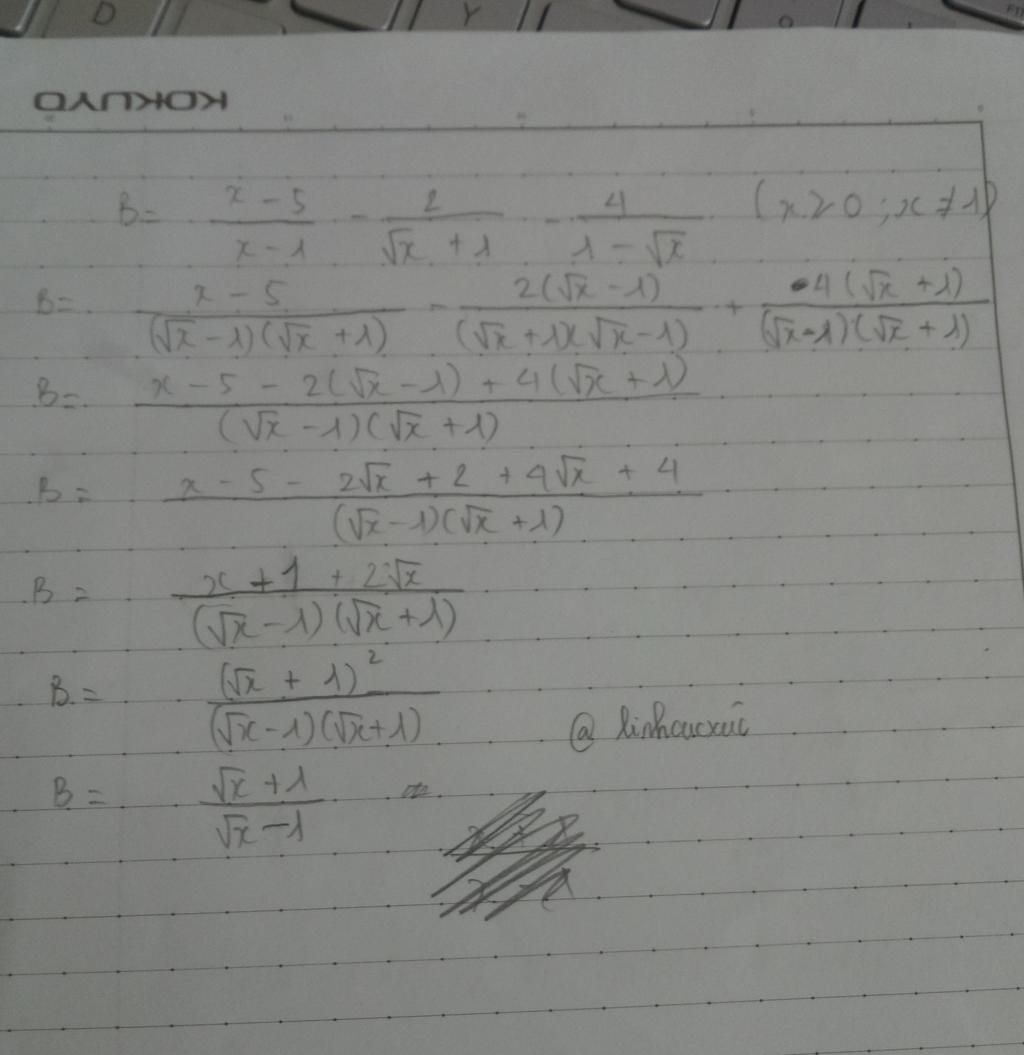 D Y
KOKUYO
B = (x - 5)/(x - 1) - 2/(√x + 1) - 4/(1 - √x) (x ≥ 0 ; x ≠ 1)
B = (x - 5)/((√x - 1)(√x + 1)) - 2(√x - 1)/((√x + 1)(√x - 1)) + 4(√x + 1)/((√x - 1)(√x + 1))
B = (x - 5 - 2(√x - 1) + 4(√x + 1))/((√x - 1)(√x + 1))
B = (x - 5 - 2√x + 2 + 4√x + 4)/((√x - 1)(√x + 1))
B = (x + 1 + 2√x)/((√x - 1)(√x + 1))
B = (√x + 1)²/((√x - 1)(√x + 1))
@ linhcucxuc
B = (√x + 1)/(√x - 1)